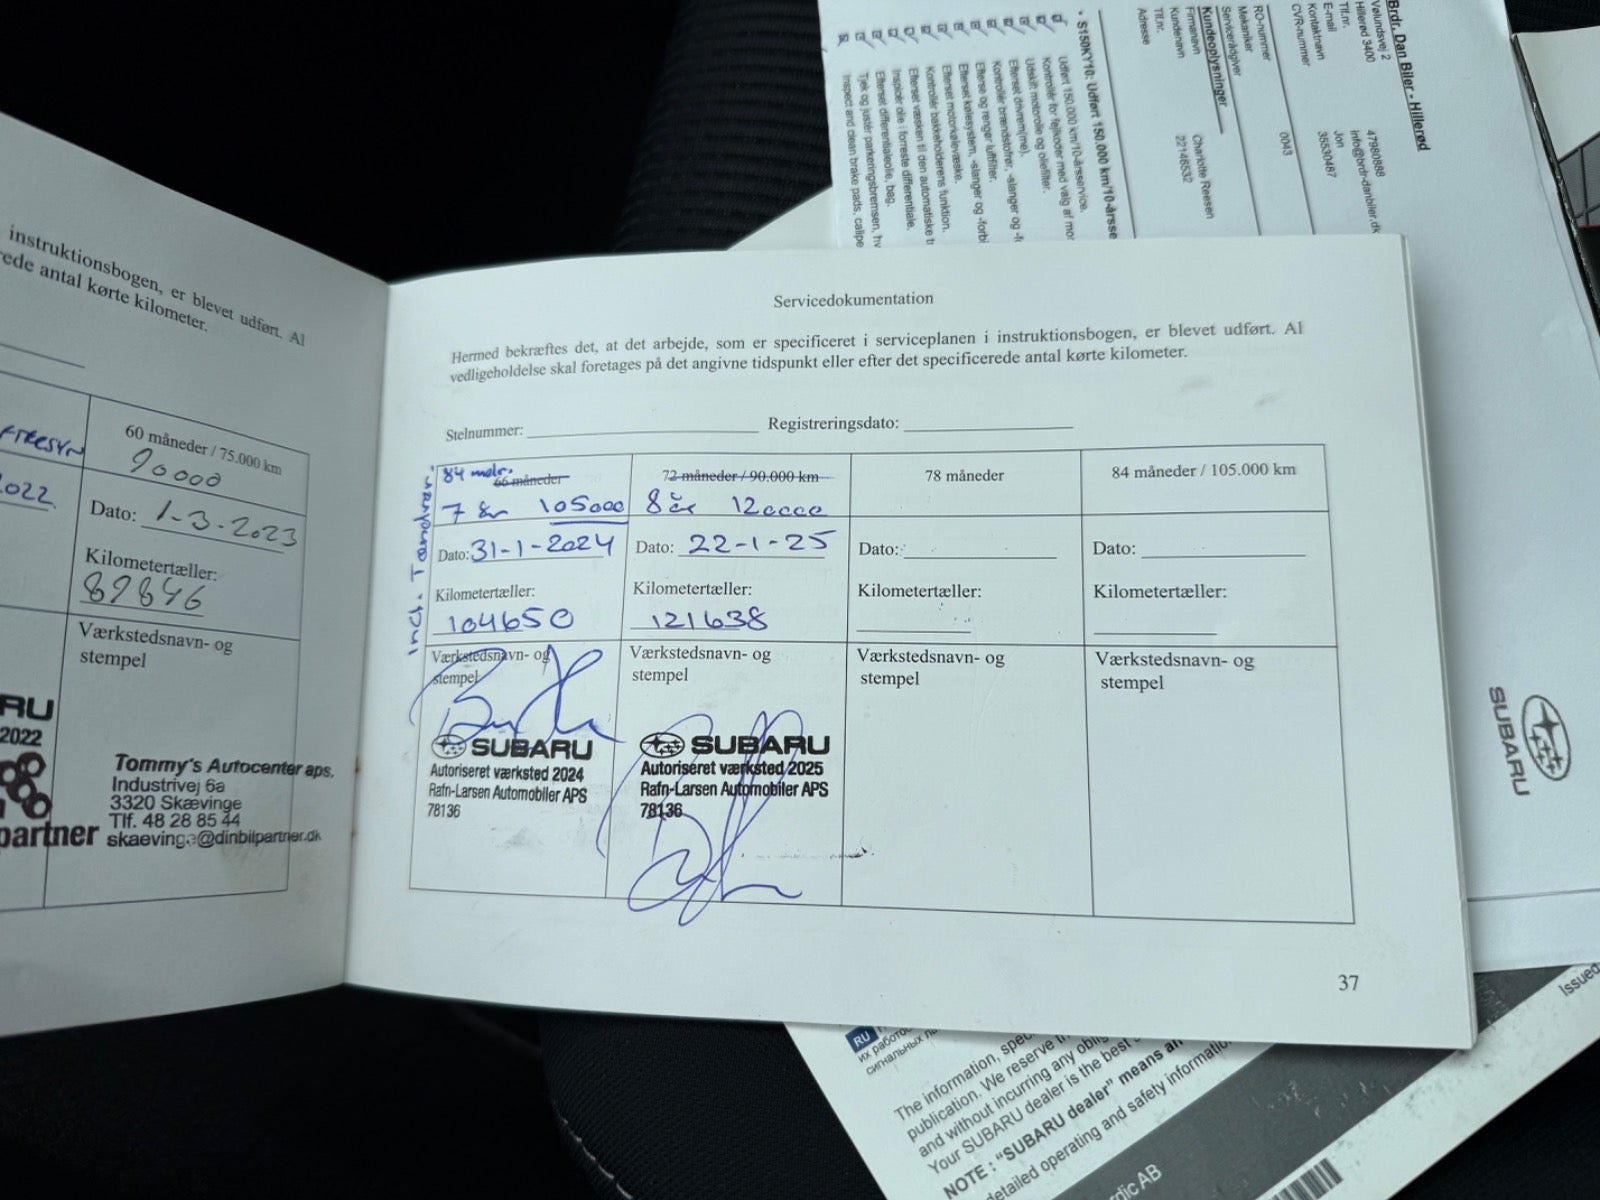 instruktionsbogen, er blevet udført. Al
antal kørte kilometer.
60 måneder / 75.000 km
90000
2022
Dato: 1-3-2023
Kilometertæller:
89846
Værkstedsnavn- og
stempel
RU
2022
partner
Tommy's Autocenter aps.
Industrivej 6a
3320 Skævinge
Tlf. 48 28 85 44
skaevinge@dinbilpartner.dk
Servicedokumentation
Hermed bekræftes det, at det arbejde, som er specificeret i serviceplanen i instruktionsbogen, er blevet udført. Al
vedligeholdelse skal foretages på det angivne tidspunkt eller efter det specificerede antal kørte kilometer.
Stelnummer: Registreringsdato:
84 mdr.
66 måneder
7 år 105000
Dato: 31-1-2024
Kilometertæller:
104650
Værkstedsnavn- og
stempel
SUBARU
Autoriseret værksted 2024
Rafn-Larsen Automobiler APS
78136
Incl. Tandrem
72 måneder / 90.000 km
8 år 120000
Dato: 22-1-25
Kilometertæller:
121638
Værkstedsnavn- og
stempel
SUBARU
Autoriseret værksted 2025
Rafn-Larsen Automobiler APS
78136
78 måneder
Dato:
Kilometertæller:
Værkstedsnavn- og
stempel
84 måneder / 105.000 km
Dato:
Kilometertæller:
Værkstedsnavn- og
stempel
37
Brdr. Dan Biler - Hillerød
Vølundsvej 2
Hillerød 3400
Tlf.nr. 47980888
E-mail info@brdr-danbiler.dk
Kontaktnavn Jon
CVR-nummer 35530487
RO-nummer 0043
Mekaniker
Servicerådgiver
Kundeoplysninger
Firmanavn Charlotte Reesen
Kundenavn 22146532
Tlf.nr.
Adresse
S150KY10: Udført 150.000 km/10-årsse
Udført 150.000 km/10-årsservice.
Kontrollér for fejlkoder med valg af mo
Udskift motorolie og oliefilter.
Efterset drivrem(me).
Kontrollér brændstofrør, -slanger og -f
Efterse og rengør luftfilter.
Efterset kølesystem, -slanger og -forbi
Efterset motorkølevæske.
Kontrollér bakkeholderens funktion.
Efterset væsken til den automatiske tr
Inspicér olie i forreste differentiale.
Efterset differentialeolie, bag.
Tjek og justér parkeringsbremsen, hv
Inspect and clean brake pads, calipe
SUBARU
RU
их работо
сигнальных
The information, spec
publication. We reserve
and without incurring any oblig
Your SUBARU dealer is the best
NOTE : "SUBARU dealer" means an
detailed operating and safety informatio
Issued
rdic AB